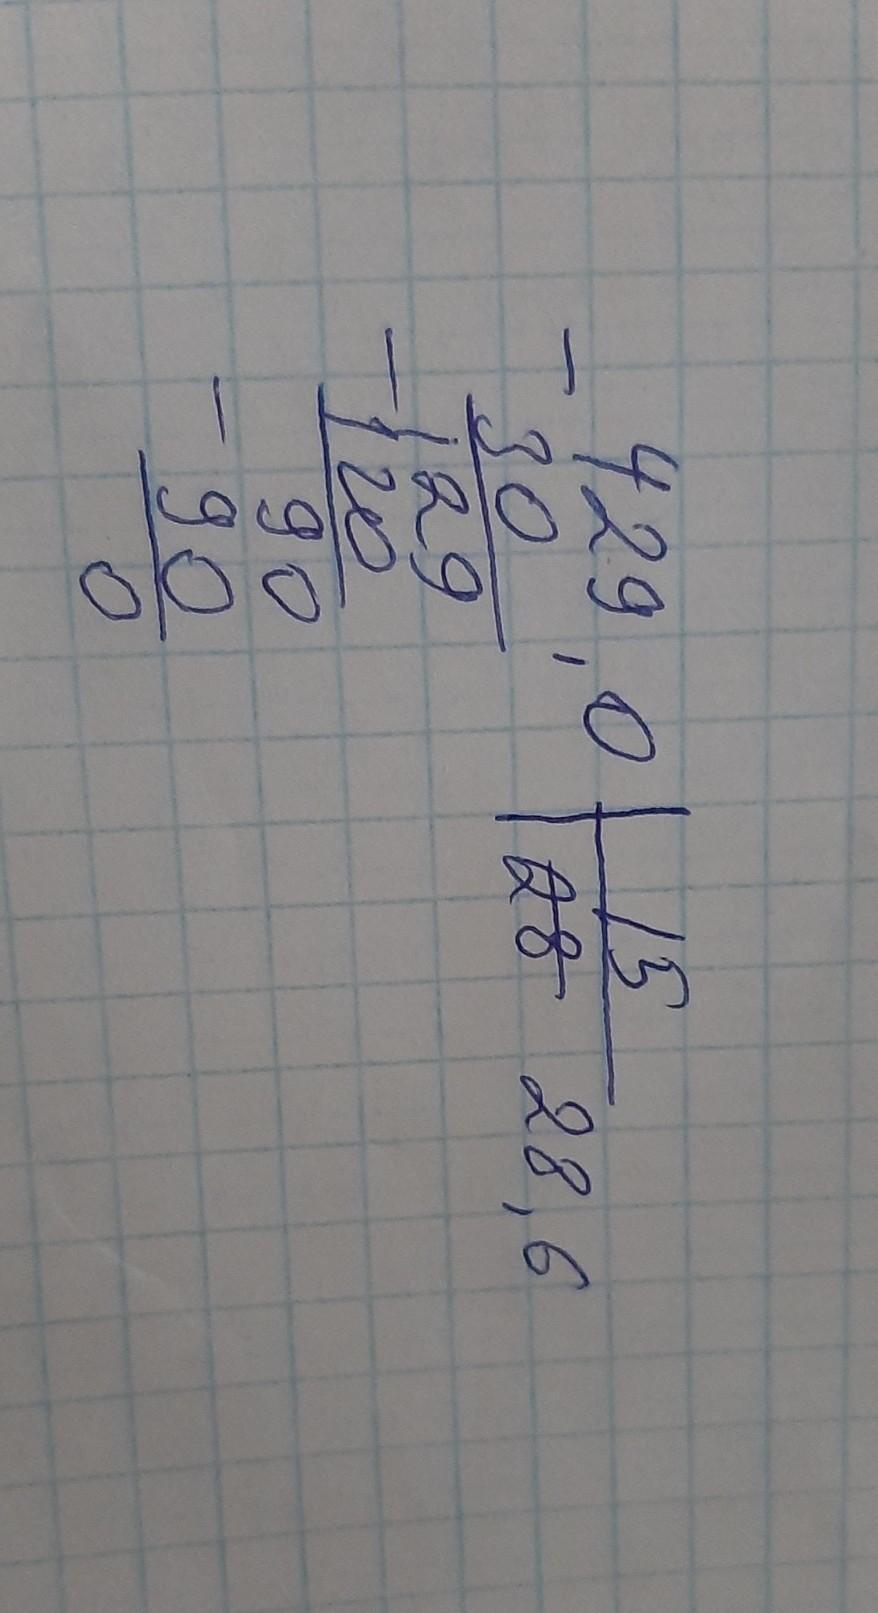 429,0 | 15
- 30 | 28 28,6
129
- 120
90
- 90
0